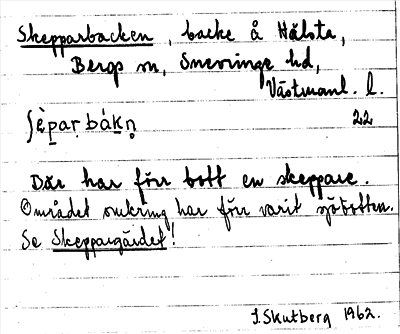 Skepparbacken, backe å Hälsta,
Bergs sn, Snevringe hd,
Västmanl. l.
ʃèpar bákn̥ 22
Där har förr bott en skeppare.
Området omkring har förr varit sjöbotten.
Se Skeppargärdet!
J. Skutberg 1962.